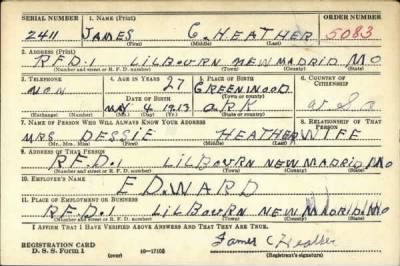 SERIAL NUMBER 1. NAME (Print) ORDER NUMBER
2411 JAMES C. HEATHER 5083
(First) (Middle) (Last)
2. ADDRESS (Print)
R.F.D.1 LILBOURN NEW MADRID MO
(Number and street or R. F. D. number) (Town) (County) (State)
3. TELEPHONE 4. AGE IN YEARS 5. PLACE OF BIRTH 6. COUNTRY OF CITIZENSHIP
NON 27 GREENWOOD
DATE OF BIRTH (Town or county)
MAY 4 1913 ARK U.S.A
(Mo.) (Day) (Yr.) (State or country)
7. NAME OF PERSON WHO WILL ALWAYS KNOW YOUR ADDRESS 8. RELATIONSHIP OF THAT PERSON
MRS. DESSIE HEATHER WIFE
(Mr., Mrs., Miss) (First) (Middle) (Last)
9. ADDRESS OF THAT PERSON
R.F.D.1 LILBOURN NEW MADRID MO
(Number and street or R. F. D. number) (Town) (County) (State)
10. EMPLOYER'S NAME
ED. WARD
11. PLACE OF EMPLOYMENT OR BUSINESS
R.F.D.1 LILBOURN NEW MADRID MO
(Number and street or R. F. D. number) (Town) (County) (State)
I AFFIRM THAT I HAVE VERIFIED ABOVE ANSWERS AND THAT THEY ARE TRUE.
James C Heather
REGISTRATION CARD
D. S. S. FORM 1 (over) 16-17105 (Registrant's signature)